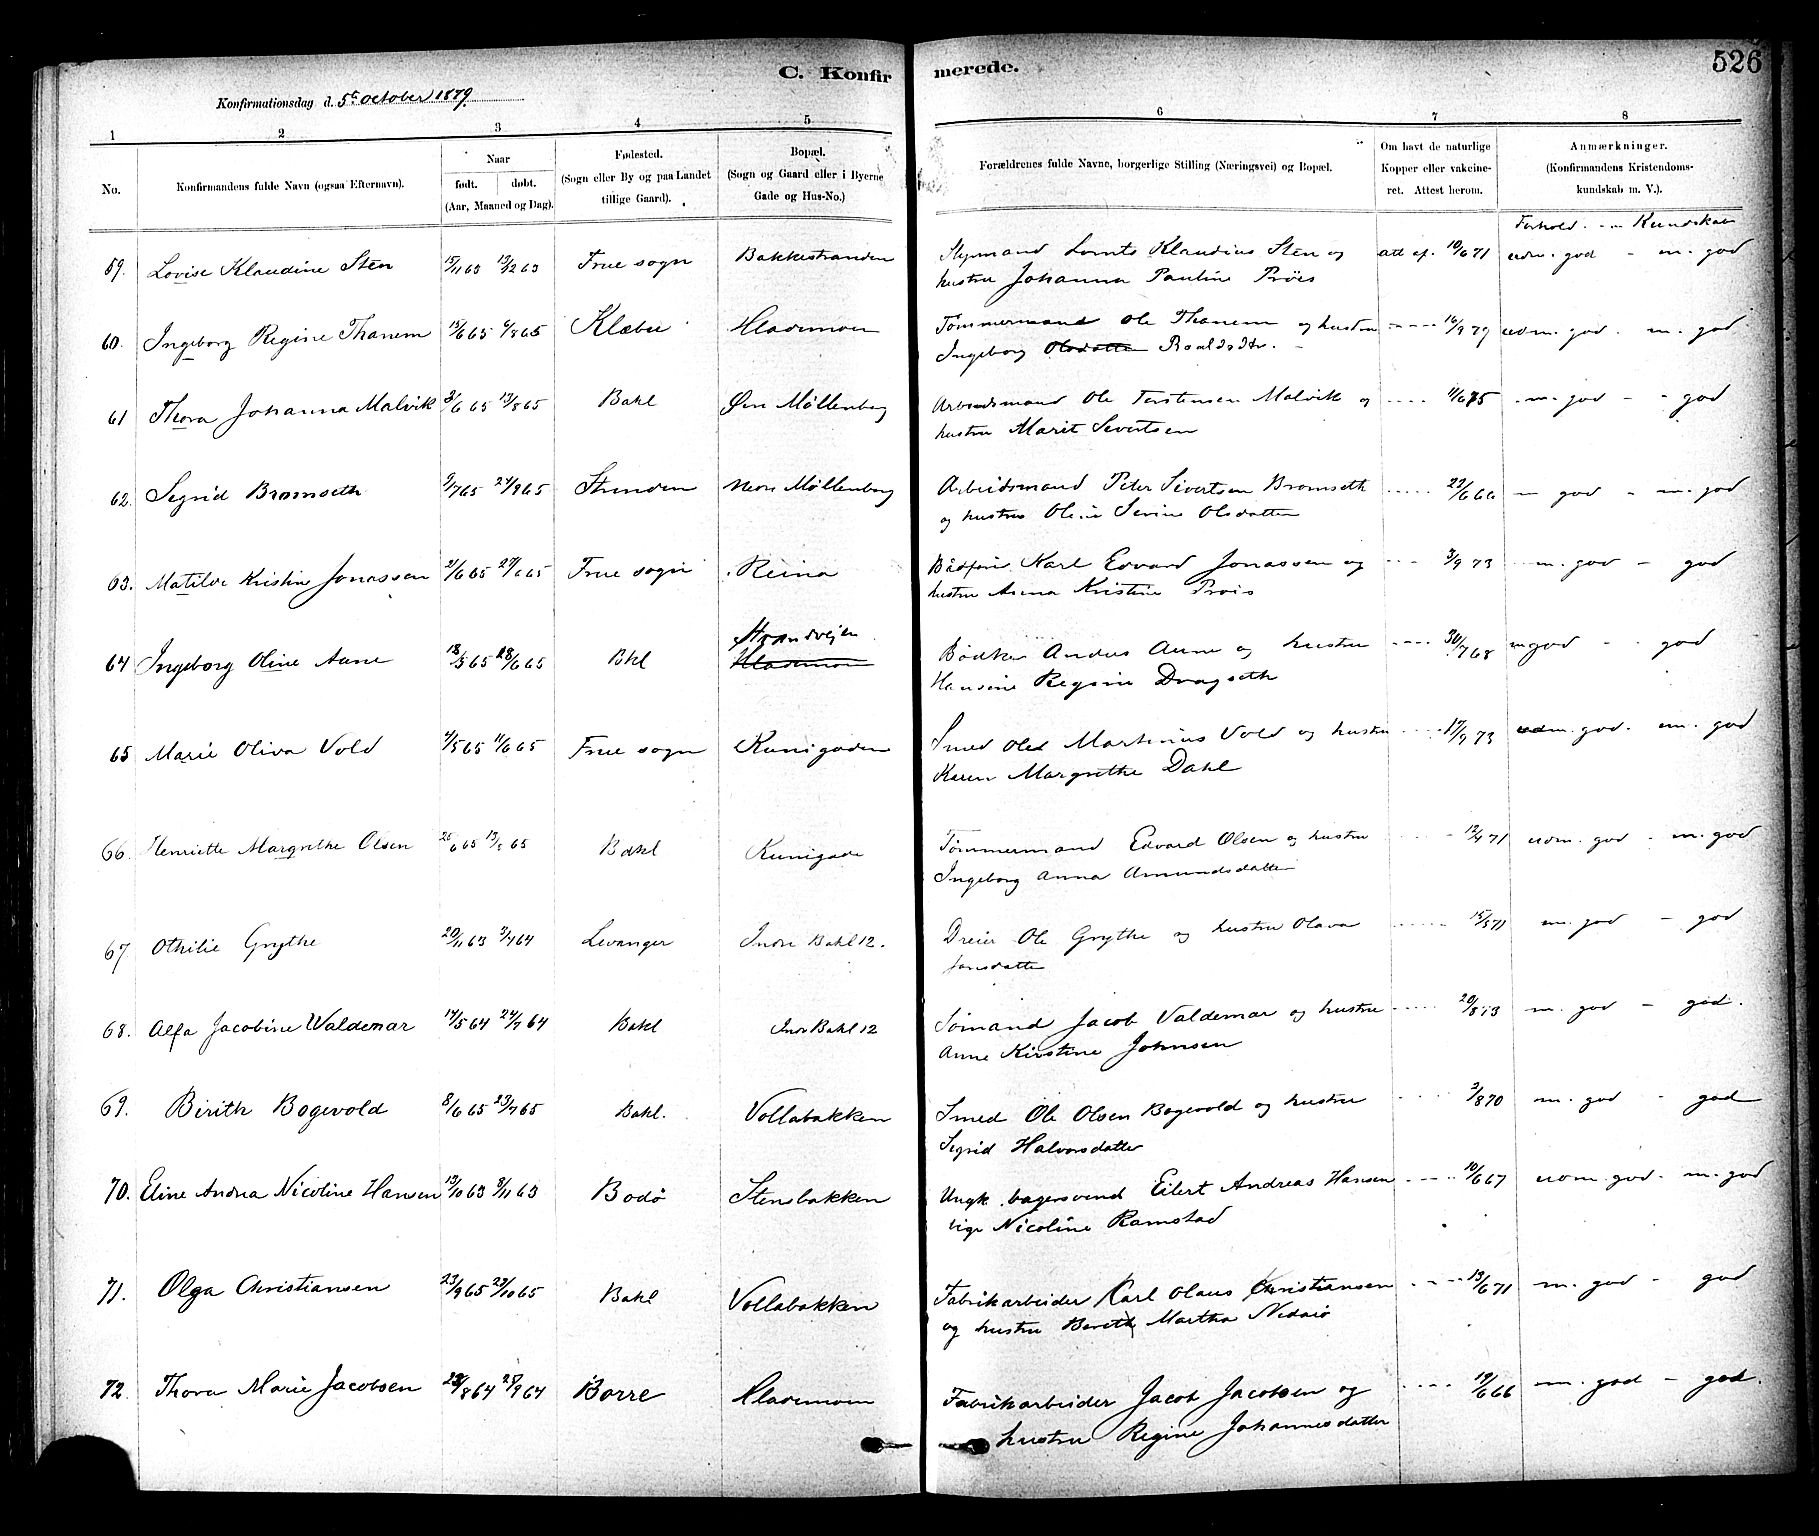 526
C. Konfir merede.
Konfirmationsdag d. 5te October 1879.
1 2 3 4 5 6 7 8
No. Konfirmandens fulde Navn (ogsaa Efternavn). Naar født. døbt. (Aar, Maaned og Dag). Fødested. (Sogn eller By og paa Landet tillige Gaard). Bopæl. (Sogn og Gaard eller i Byerne Gade og Hus-No.) Forældrenes fulde Navne, borgerlige Stilling (Næringsvei) og Bopæl. Om havt de naturlige Kopper eller vakcineret. Attest herom. Anmærkninger. (Konfirmandens Kristendomskundskab m. V.).
Forhold. Kundskab
59. Lovise Klaudine Sten 63 63 Frue sogn Bakkestranden Styrmand Lornts Klaudius Sten og att af. 10/6 71 udm. god - m. god
hustru Johanna Pauline Pröis
60. Ingeborg Regine Thanem 15/6 65 6/8 65 Klæbu Hlademoen Tømmermand Ole Thanem og hustru 16/9 79 udm. god. m. god
Ingeborg Olsdatter Roaldsdtr.
61 Thora Johanna Malvik 65 13/8 65 Bakl Øvr Möllenberg Arbeidsmand Ole Torstensen Malvik og 11/6 75 m. god - god
hustru Marit Sivertsen
62. Sigrid Bromseth 9/7 65 24/9 65 Strinden Nedre Möllenberg Arbeidsmand Peter Sivertsen Bromseth 29/6 66 m god - m. god
og hustru Oline Serine Olsdatter
63. Matilde Kristine Jonassen 2/6 65 65 Frue sogn Reina Bådfører Karl Edvard Jonassen og 3/9 73 m. god - god
hustru Anna Kristine Prøis
Strandvejen
64 Ingeborg Oline Aune 18/3 65 18/6 65 Bkl Hlademoen Bødker Anders Aune og hustru 30/7 68 m god - god
Hansine Regine Dragseth
65 Marie Oliva Vold 4/5 65 11/6 65 Frue sogn Kunigaden Smed Oled Martinus Vold og hustru 17/9 73 udm. god. m. god
Karen Margrethe Dahl
66. Henriette Margrethe Olsen 25/6 65 65 Bakl Kunigade Tømmermand Edvard Olsen og hustru 12/4 71 udm. god - m. god
Ingeborg Anna Amundsdatter
67 Othilie Grythe 20/11 63 3/4 64 Levanger Indre Bakl 12. Dreier Ole Grythe og hustru Olava 15/5 71 m. god - god
Jonsdatter
68. Alfa Jacobine Waldemar 14/5 64 24/7 64 Bakl Indr Bakl 12 Sömand Jacob Valdemar og hustru 20/8 73 m. god - god.
Anne Kirstine Johnsen
69. Birith Bogevold 8/6 65 23/7 65 Bakl. Vollabakken Smed Ole Olsen Bogevold og hustru 2/8 70 m. god - god
Sigrid Halvorsdatter
70. Eline Andrea Nicoline Hansen 13/10 63 9/11 63 Bodö Stensbakken Ungk. bagersvend Eilert Andreas Hansen 10/6 67 udm. god - m. god
Pige Nicoline Ramstad
71. Olga Christiansen 23/9 65 29/10 65 Bakl Vollabakken Fabrikarbeider Karl Olaus Christiansen 13/6 71 m. god - god
og hustru Bereth Martha Nidarö
72. Thora Marie Jacobsen 28/8 64 25/9 64 Borre Hlademoen Fabrikarbeider Jacob Jacobsen og 19/6 66 m. god - god.
hustru Regine Johannesdatter